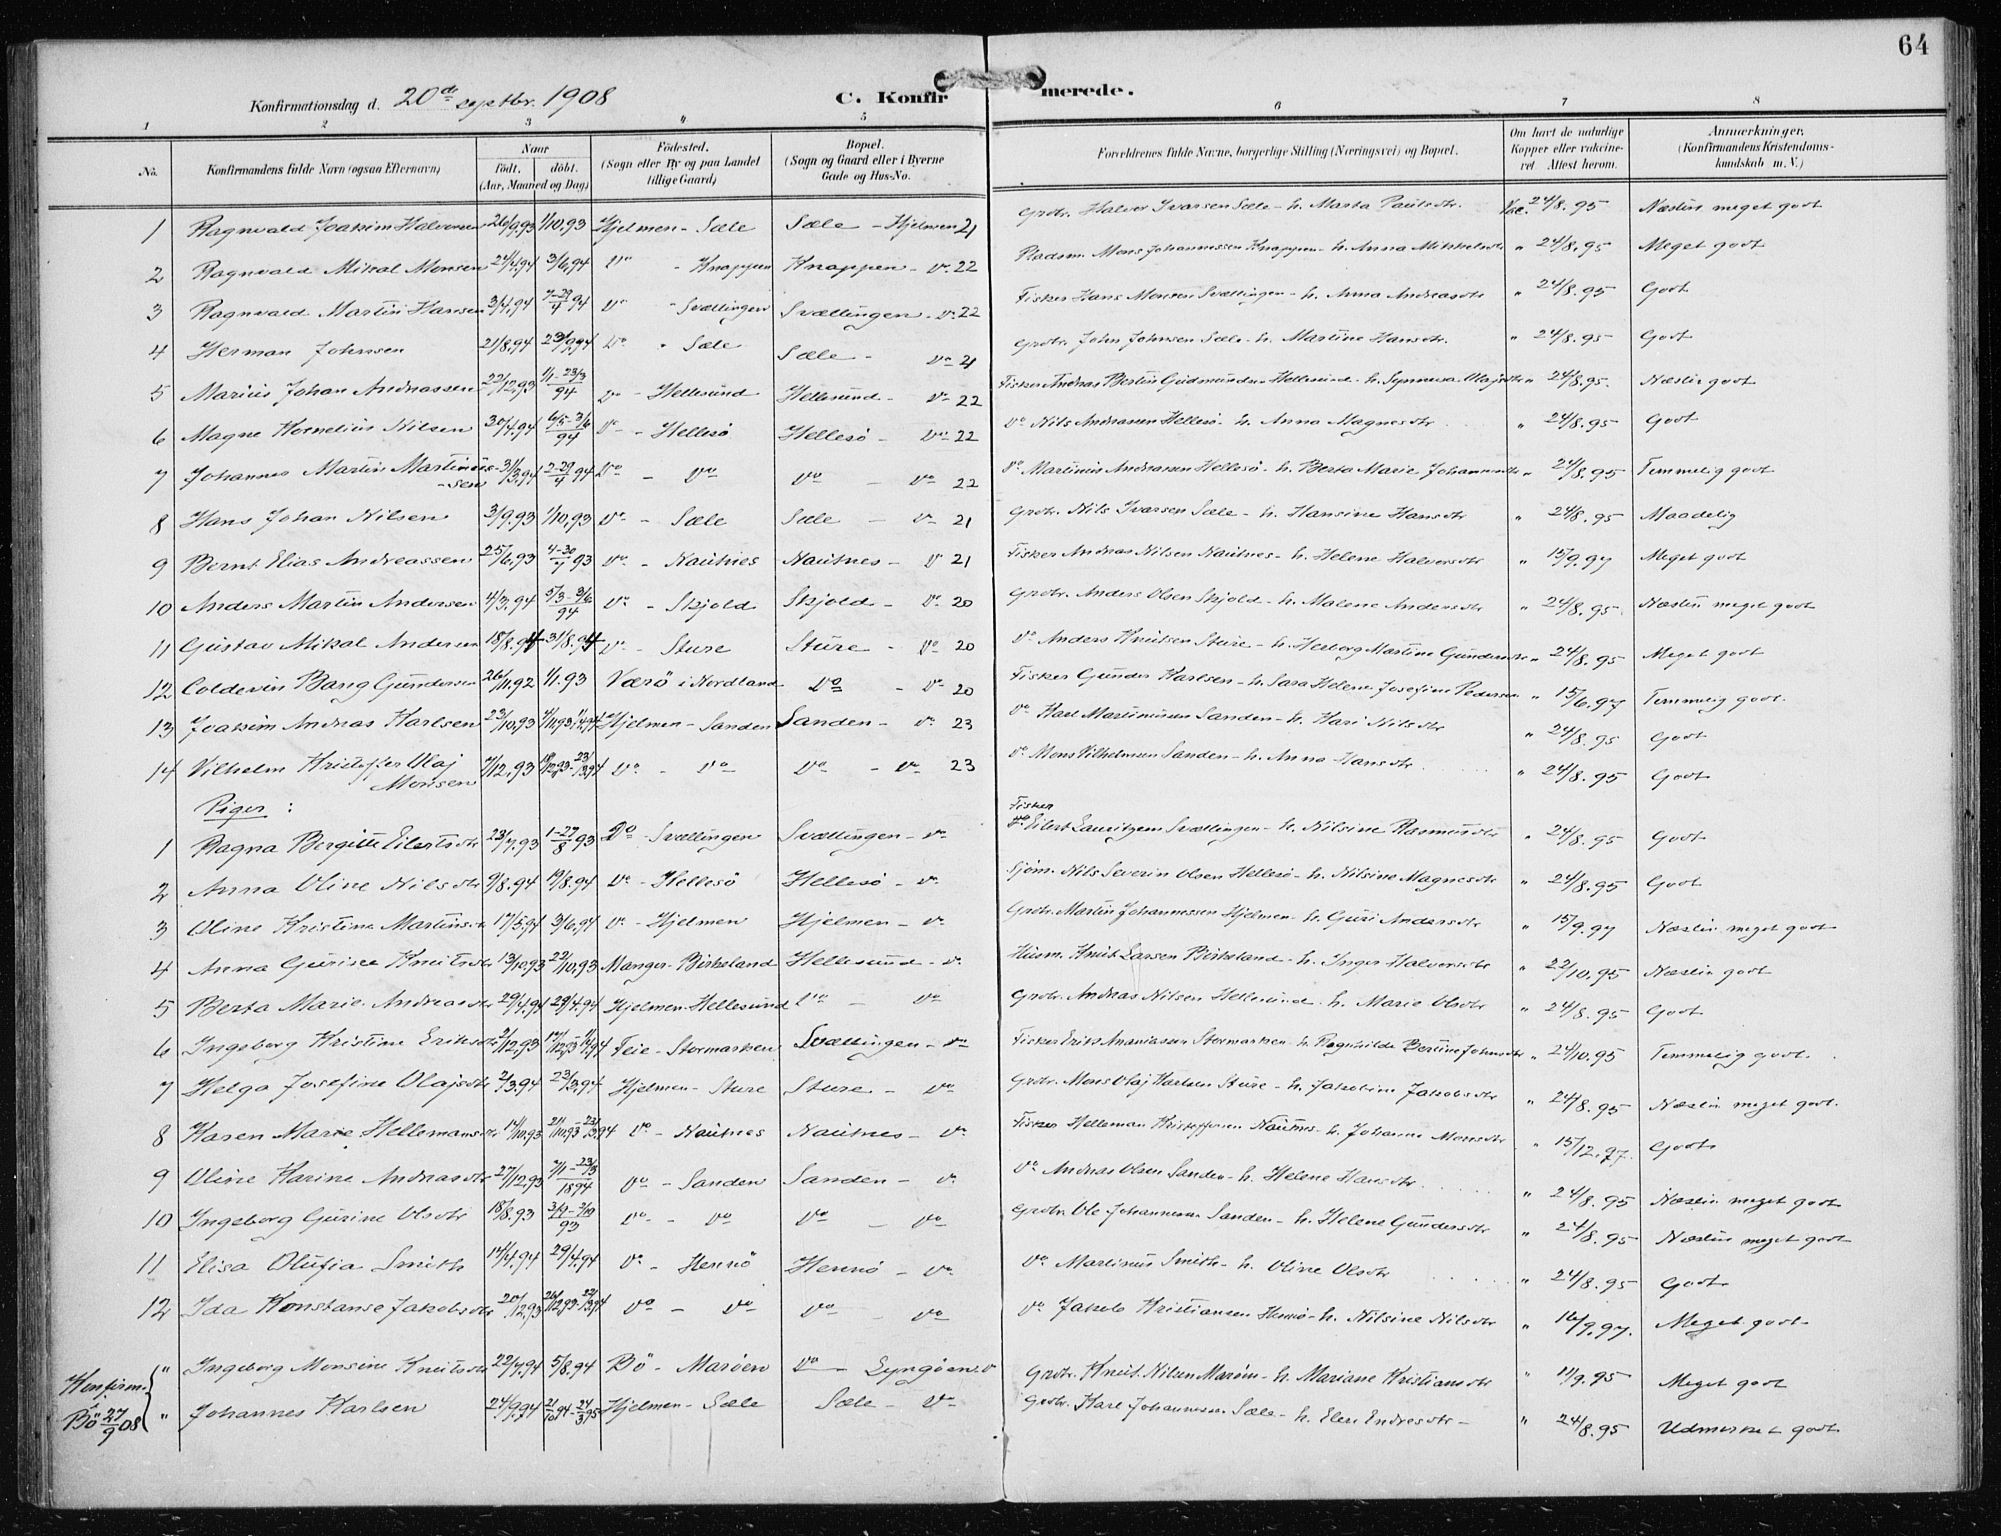 64
Konfirmationsdag d. 20de septbr. 1908 C. Konfirmerede.
1 2 3 4 5 6 7 8
No. Konfirmandens fulde Navn (ogsaa Efternavn) Naar født, døbt. (Aar, Maaned og Dag) Fødested. (Sogn eller By og paa Landet tillige Gaard) Bopæl. (Sogn og Gaard eller i Byerne Gade og Hus-No. Forældrenes fulde Navne, borgerlige Stilling (Næringsvei) og Bopæl. Om havt de naturlige Kopper eller vaccineret. Attest herom. Anmærkninger. (Konfirmandens Kristendomskundskab m. V.)
1 Ragnvald Joakim Halvorsen 26/9.93 1/10.93 Hjelmen - Sæle Sæle - Hjelmen 21 Grdbr. Halvor Ivarsen Sæle - h. Marta Paulsdtr. Vac. 24/8.95 Næsten meget godt
2 Ragnvald Mikal Monsen 24/4.94 3/6.94 Do - Knappen Knappen - Do 22 Pladsm. Mons Johannessen Knappen - h. Anna Mikkelsdtr " 24/8.95 Meget godt
3 Ragnvald Martin Hansen 3/4.94 7-29/4 94 Do - Svællingen Svællingen - Do 22 Fisker Hans Monsen Svællingen - h. Anna Andreasdtr " 24/8.95 Godt
4 Herman Johnsen 21/8.94 23/9.94 Do " Sæle Sæle - Do 21 Grdbr. John Johnsen Sæle - h. Martine Hansdtr. " 24/8.95 Godt
5 Marius Johan Andreassen 22/12.93 1/1-23/3 94 Do - Hellesund Hellesund - Do 22 Fisker Andreas Bertin Gudmundsen Hellesund - h. Synneva Olajsdtr " 24/8.95. Næsten godt
6 Magne Kornelius Nilsen 30/4.94 6/5-3/6 94 Do - Hellesö Hellesö - Do 22 Do Nils Andreassen Hellesö - h. Anna Magnesdtr " 24/8.95 Godt
7 Johannes Martin Martinus-sen 31/3.94 2-29/4 94 Do - Do Do - Do 22 Do Martinus Andreassen Hellesö - h. Berta Marie Johannesdtr " 24/8.95 Temmelig godt
8 Hans Johan Nilsen 3/9.93 1/10.93 Do - Sæle Sæle - Do 21 Grdbr. Nils Ivarsen Sæle - h. Hansine Hansdtr " 24/8.95 Maadelig
9 Bernt Elias Andreassen 25/6.93 4-30/7 93 Do - Nautnes Nautnes - Do 21 Fisker Andreas Nilsen Nautnes - h. Helene Halvorsdtr " 15/9.97 Meget godt
10 Anders Martin Andersen 4/3.94 5/3-3/6 94 Do - Skjold Skjold - Do 20 Grdbr. Anders Olsen Skjold - h. Malene Andersdtr " 24/8.95 Næsten meget godt
11 Gustav Mikal Andersen 18/8.94 31/8.94 Do - Sture Sture - Do 20 Do Anders Knutsen Sture - h. Herborg Martine Gundersdtr " 24/8.95 Meget godt
12 Coldevin Bang Gundersen 26/11.92 1/1.93 Værö i Nordland Do - Do 20 Fisker Gunder Karlsen - h. Sara Helene Josefine Pedersen " 15/6.97 Temmelig godt.
13 Joakim Andreas Karlsen 23/10.93 Hjelmen - Sanden Sanden - Do 23 Do Karl Martinussen Sanden - h. Kari Nilsdtr " 24/8.95 Godt
14 Vilhelm Kristoffer Olaj Monsen 7/12.93 Do - Do Do - Do 23 Do Mons Vilhelmsen Sanden - h. Anna Hansdtr " 24/8.95 Godt
Piger:
1 Ragna Bergitte Eilertsdtr 23/7.93 1-27/8 93 Do - Svællingen Svællingen - Do Fisker Eilert Lauritzen Svællingen - h. Nilsine Rasmusdtr " 24/8.95 Godt
2 Anna Oline Nilsdtr 9/8.94 19/8.94 Do - Hellesö Hellesö - Do Sjöm. Nils Severin Olsen Hellesö - h. Nilsine Magnesdtr " 24/8.95 Godt
3 Oline Kristine Martinsdtr 17/5.94 3/6.94 Do - Hjelmen Hjelmen - Do Grdbr. Martin Johannessen Hjelmen - h. Guri Andersdtr " 15/9.97 Næsten meget godt
4 Anna Gurine Knutsdtr 13/10.93 22/10.93 Manger - Birkeland Hellesund - Do Husm. Knut Larsen Birkeland - h. Inger Halvorsdtr " 22/10.95 Næsten godt
5 Berta Marie Andreasdtr 29/4.94 Hjelmen - Hellesund Do - Do Grdbr. Andreas Nilsen Hellesund - h. Marie Olsdtr " 24/8.95 Godt
6 Ingeborg Kristine Eriksdtr 2/12.93 Feie - Stormarken Svællingen - Do Fisker Erik Ananiassen Stormarken - h. Ragnhilde Bertine Johnsdtr " 24/10.95 Temmelig godt.
7 Helga Josefine Olajsdtr 2/3.94 23/3.94 Hjelmen - Sture Sture - Do Grdbr. Mons Olaj Karlsen Sture - h. Jakobine Jakobsdtr " 24/8.95 Næsten meget godt.
8 Karen Marie Hellemansdtr 14/10.93 Do - Nautnes Nautnes - Do Fisker Helleman Kristoffersen Nautnes - h. Johanne Monsdtr " 15/12.97. Godt
9 Oline Karine Andreasdtr 27/12.93 7/1-23/3 1894 Do - Sanden Sanden - Do Do Andreas Olsen Sanden - h. Helene Hansdtr " 24/8.95 Næsten meget godt
10 Ingeborg Gurine Olsdtr 18/8.93 93 Do - Do Do - Do Grdbr. Ole Johannessen Sanden - h. Helene Gundersdtr " 24/8.95 Næsten meget godt
11 Elisa Olufia Smith 14/4.94 29/4.94 Do - Hernö Hernö - Do Do Martinus Smith - h. Oline Olsdtr " 24/8.95 Godt
12 Ida Konstanse Jakobsdtr 20/12.93 Do - Do Do - Do Do Jakob Kristiansen Hernö - h. Nilsine Nilsdtr " 16/9.97. Meget godt
Konfirm. i Bö 27/9 08 { " Ingeborg Monsine Knutsdtr 22/7.94 5/8.94 Bö - Maröen Do - Lyngöen Do Grdbr. Knut Nilsen Maröen - h. Mariane Kristiansdtr " 11/9.95 Meget godt
" Johannes Karlsen 24/9.94 21/10 94-24/3 95 Hjelmen - Sæle Sæle - Do Grdbr. Karl Johannessen Sæle - h. Elen Endresdtr - " 24/8.95 Udmerket godt